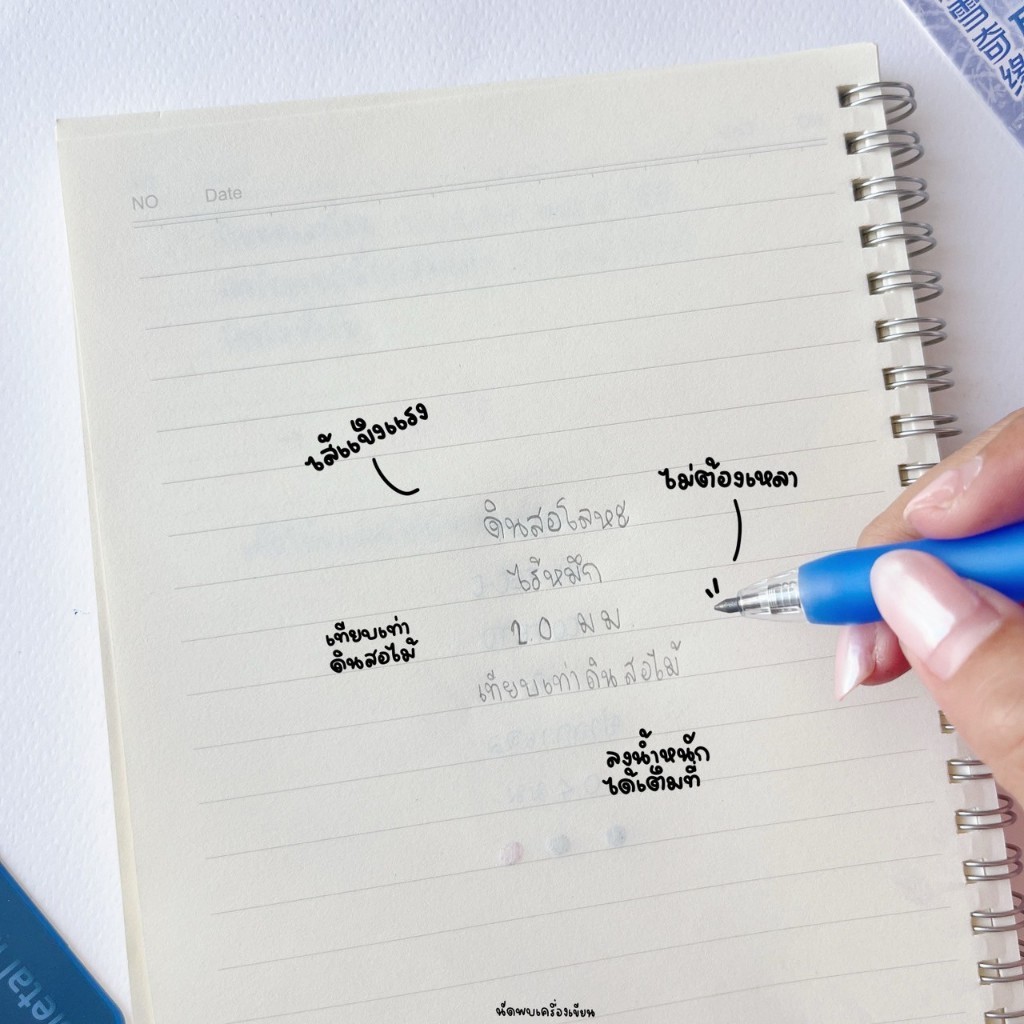 NO Date
ไส้แข็งแรง
ไม่ต้องเหลา
ดินสอโลหะ
ไร้หมึก
2.0 มม.
เทียบเท่าดินสอไม้
เทียบเท่า
ดินสอไม้
ลงน้ำหนัก
ได้เต็มที่
นัดพบเครื่องเขียน